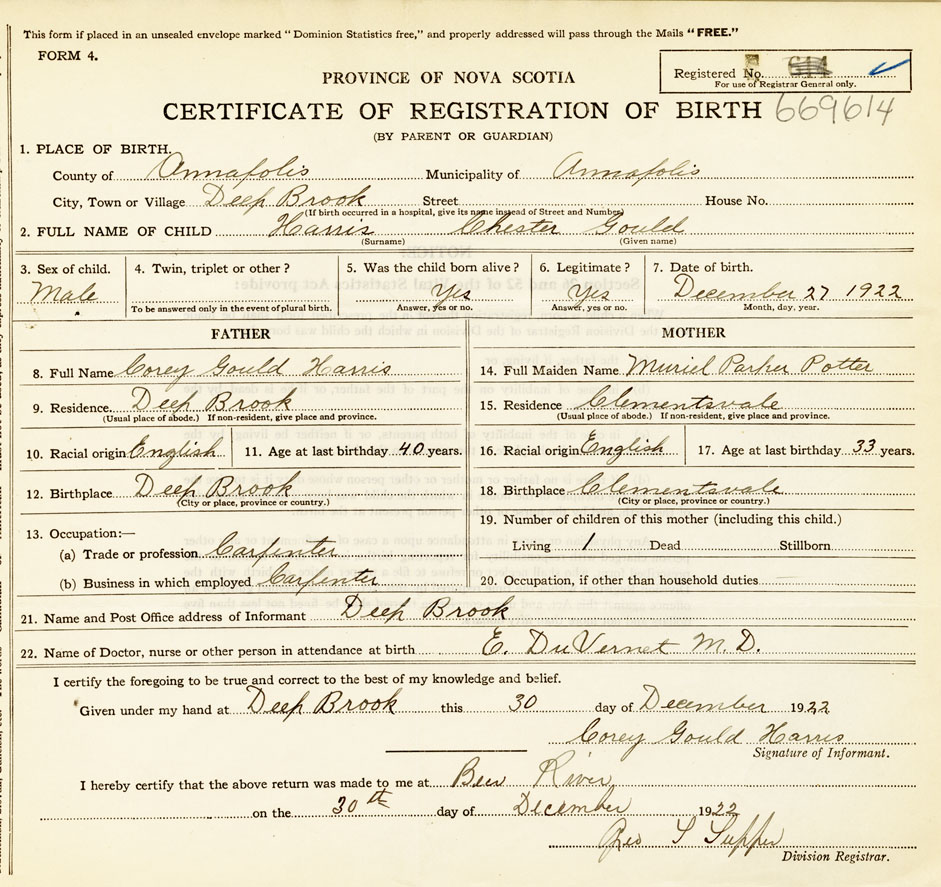 This form if placed in an unsealed envelope marked "Dominion Statistics free," and properly addressed will pass through the Mails "FREE."
FORM 4.
Registered No. 614
For use of Registrar General only.
PROVINCE OF NOVA SCOTIA
CERTIFICATE OF REGISTRATION OF BIRTH 669614
(BY PARENT OR GUARDIAN)
1. PLACE OF BIRTH.
County of Annapolis Municipality of Annapolis
City, Town or Village Deep Brook Street House No.
(If birth occurred in a hospital, give its name instead of Street and Number)
2. FULL NAME OF CHILD Harris Chester Gould
(Surname) (Given name)
3. Sex of child. 4. Twin, triplet or other? 5. Was the child born alive? 6. Legitimate? 7. Date of birth.
Male Yes Yes December 27 1922
To be answered only in the event of plural birth. Answer, yes or no. Answer, yes or no. Month, day, year.
FATHER
8. Full Name Corey Gould Harris
9. Residence. Deep Brook
(Usual place of abode.) If non-resident, give place and province.
10. Racial origin English 11. Age at last birthday 40 years.
12. Birthplace Deep Brook
(City or place, province or country.)
13. Occupation:—
(a) Trade or profession Carpenter
(b) Business in which employed Carpenter
MOTHER
14. Full Maiden Name Muriel Parker Potter
15. Residence Clementsvale
(Usual place of abode.) If non-resident, give place and province.
16. Racial origin English 17. Age at last birthday 33 years.
18. Birthplace Clementsvale
(City or place, province or country.)
19. Number of children of this mother (including this child.)
Living 1 Dead Stillborn
20. Occupation, if other than household duties
21. Name and Post Office address of Informant Deep Brook
22. Name of Doctor, nurse or other person in attendance at birth E. DuVernet M. D.
I certify the foregoing to be true and correct to the best of my knowledge and belief.
Given under my hand at Deep Brook this 30 day of December 1922
Corey Gould Harris
Signature of Informant.
I hereby certify that the above return was made to me at Bear River
on the 30th day of December 1922
Geo S
Division Registrar.